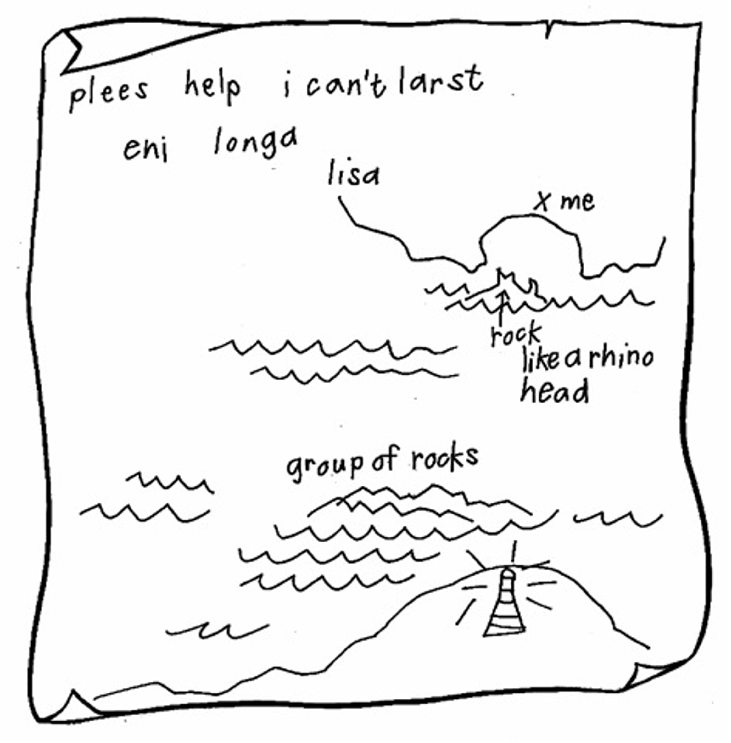 plees help i can't larst
eni longa
lisa
x me
rock
like a rhino
head
group of rocks